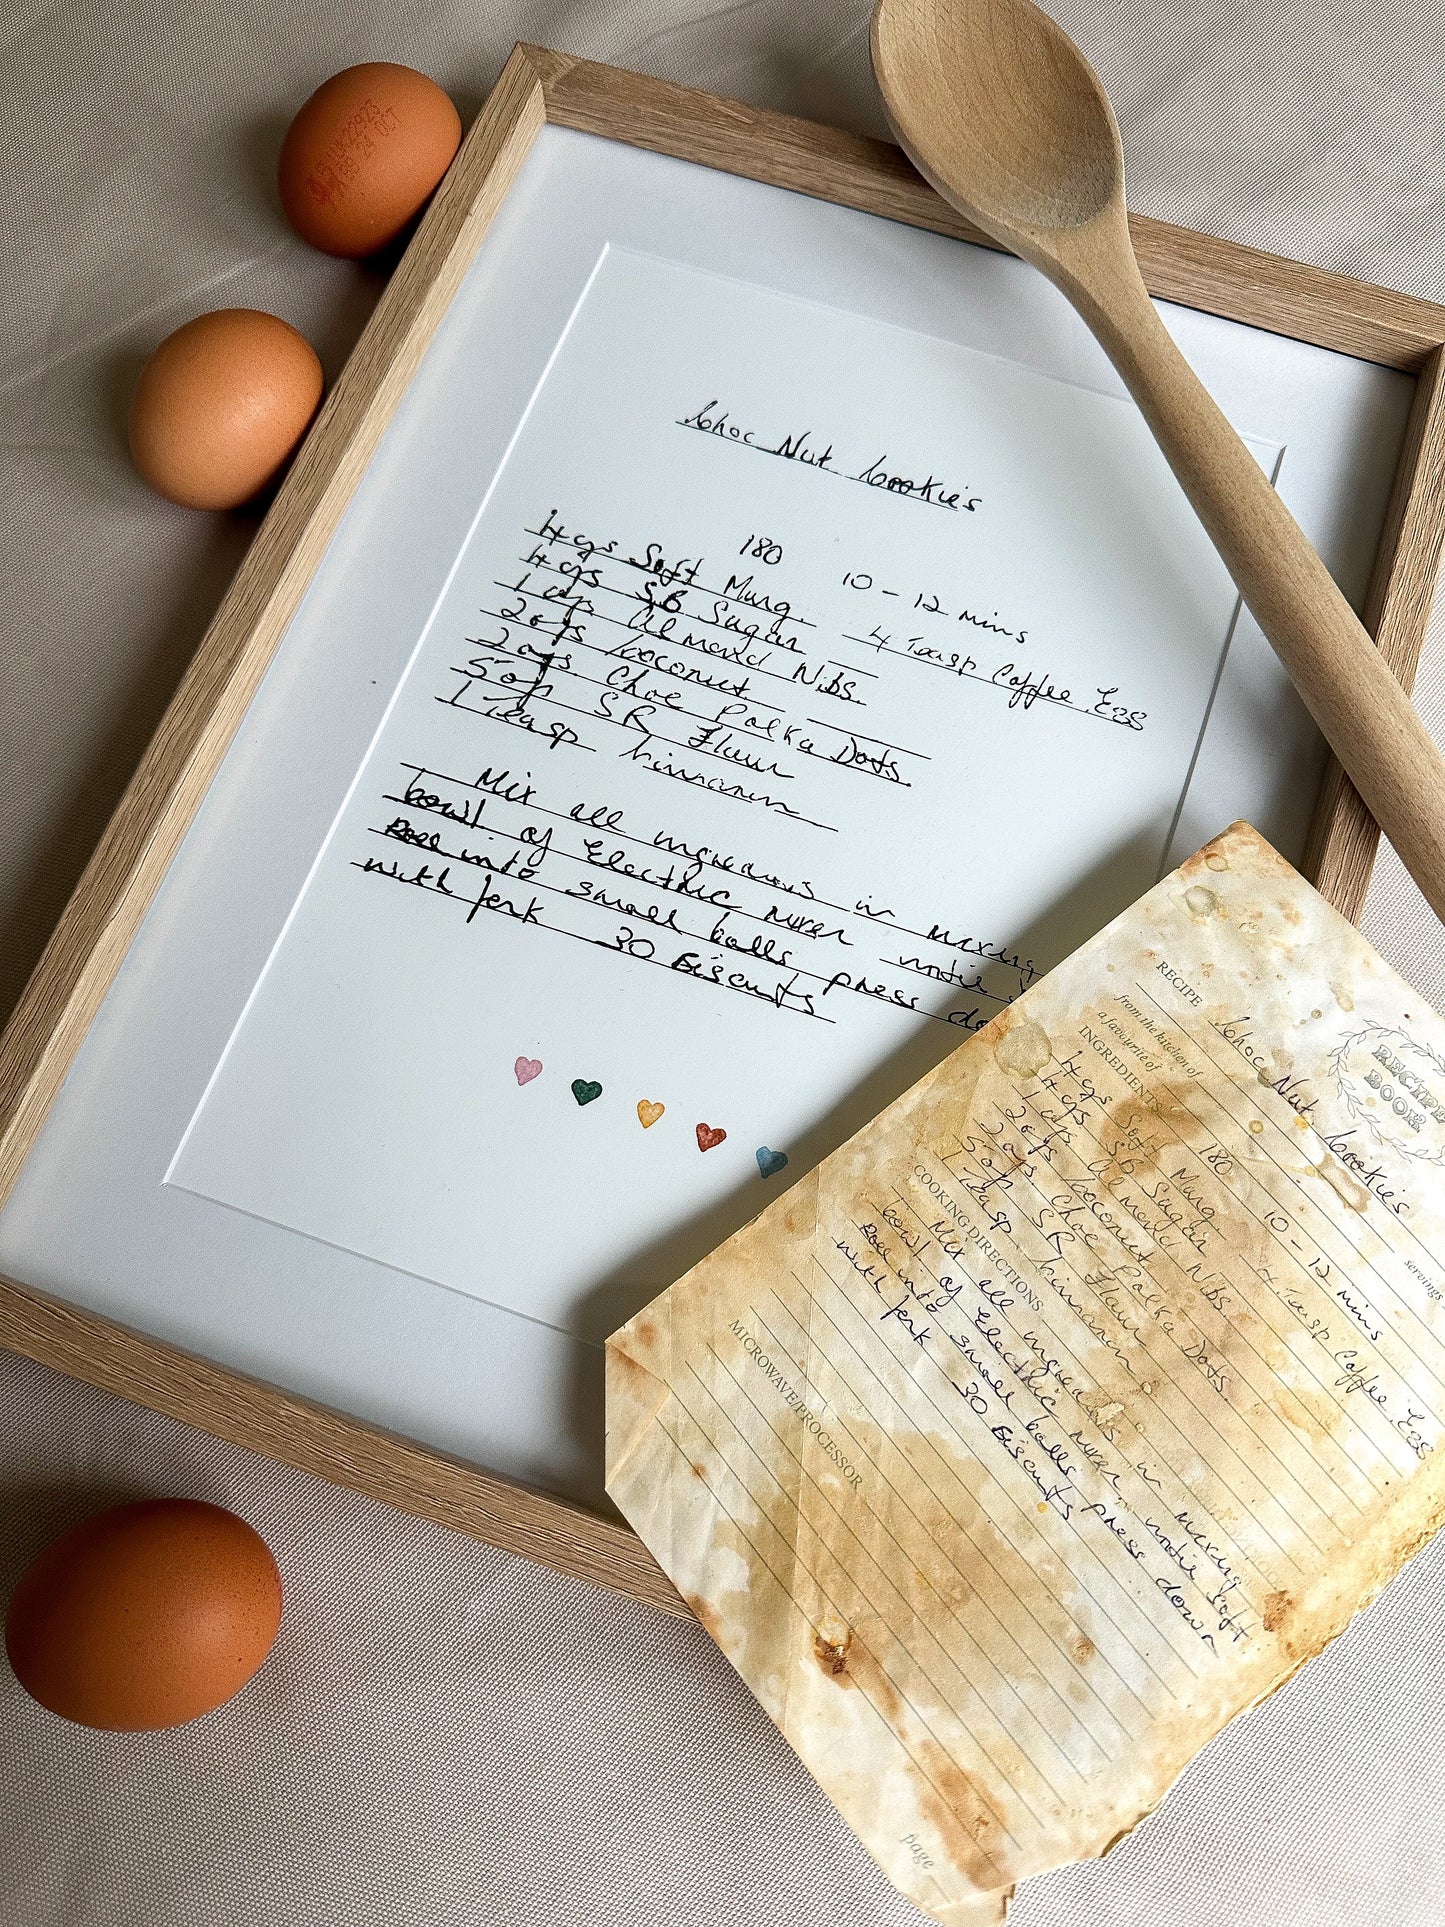 Choc Nut Cookies
180 10 - 12 mins
4 ozs Soft Marg.
4 ozs SB Sugar 4 Teasp Coffee Ess
1 oz Almond Nibs.
2 ozs Coconut
2 ozs. Choc Polka Dots.
5 oz SR Flour
1 Teasp Cinnamon
Mix all ingredients in mixing
bowl of Electric mixer until
Roll into small balls press do
with fork 30 Biscuits
RECIPE BOOK
RECIPE Choc Nut Cookies
from the kitchen of
a favourite of
servings
INGREDIENTS 180 10 - 12 mins
4 ozs Soft Marg.
4 ozs SB Sugar 4 Teasp Coffee Ess
1 oz Almond Nibs.
2 ozs Coconut
2 ozs Choc Polka Dots.
5 oz SR Flour
1 Teasp Cinnamon
COOKING DIRECTIONS
Mix all ingredients in mixing
bowl of Electric mixer until soft
Roll into small balls press down
with fork 30 Biscuits
MICROWAVE/PROCESSOR
page